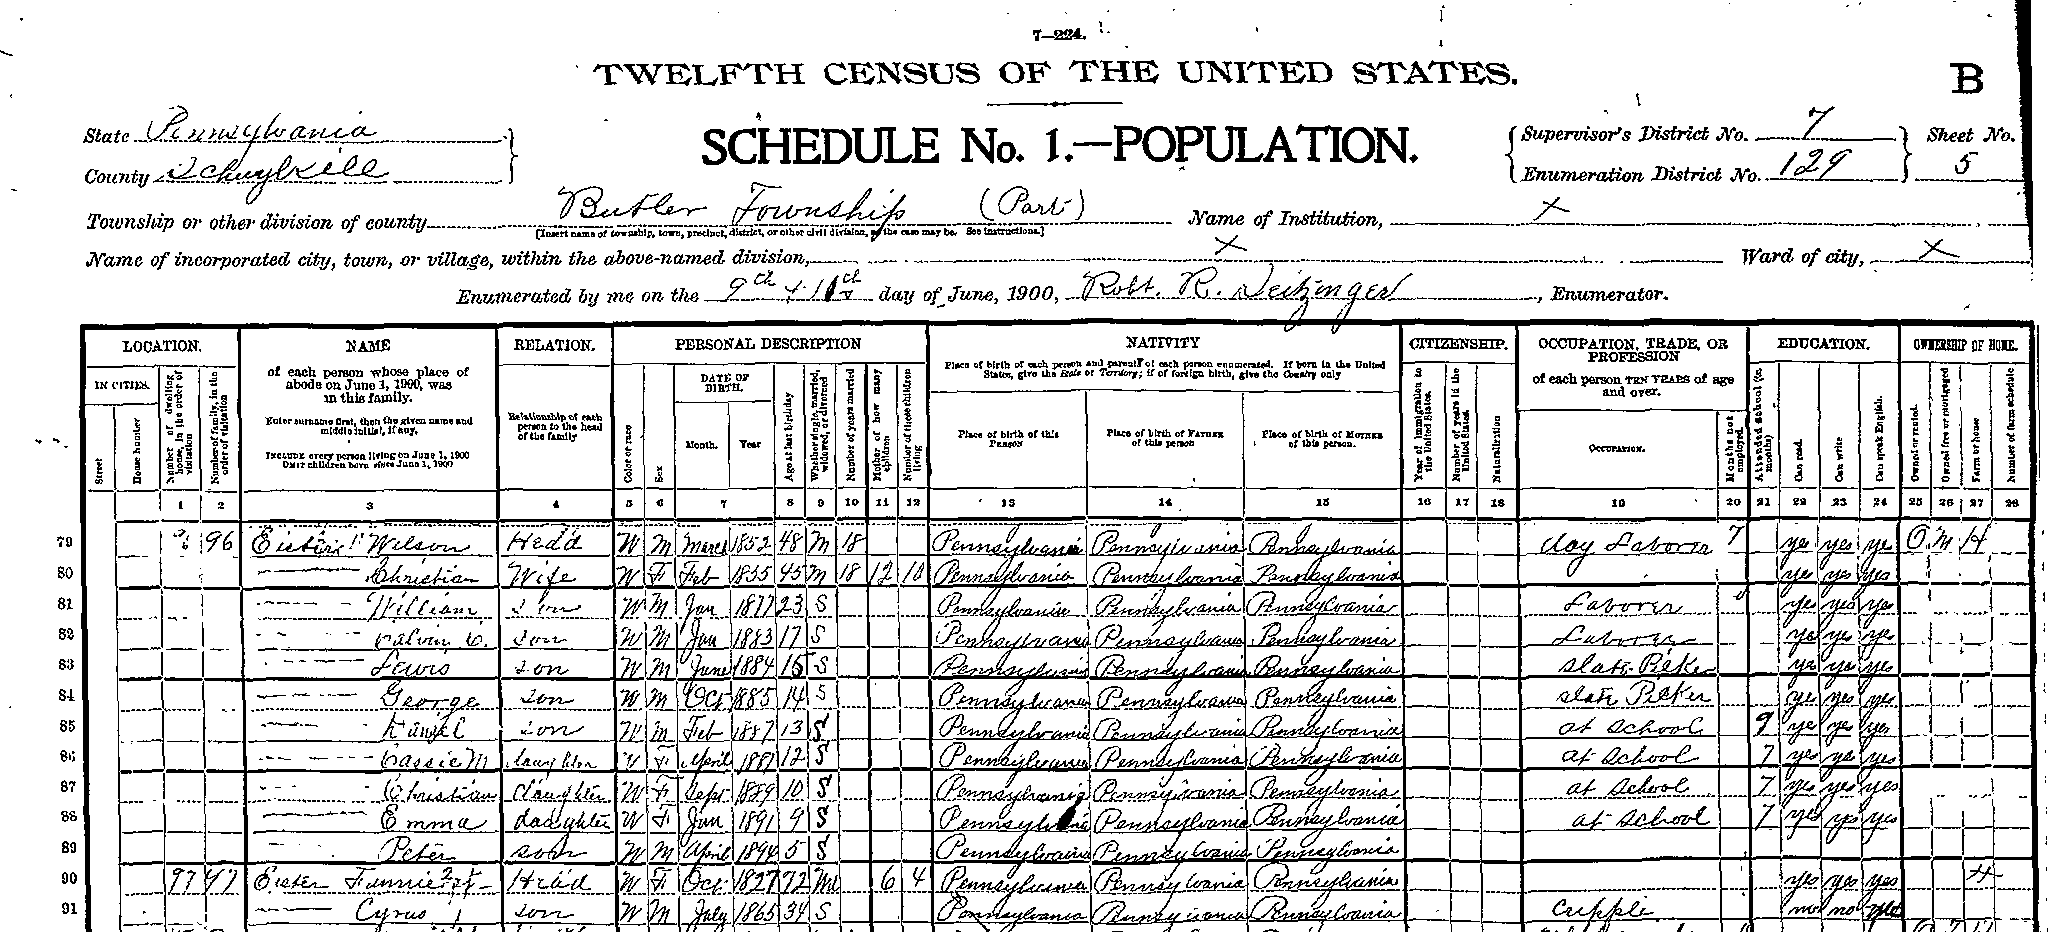 7—224.
TWELFTH CENSUS OF THE UNITED STATES.
B
State Pennsylvania
County Schuylkill
SCHEDULE No. 1.—POPULATION.
Supervisor's District No. 7
Enumeration District No. 129
Sheet No.
5
Township or other division of county Butler Township (Part)
Name of Institution, X
[Insert name of township, town, precinct, district, or other civil division, as the case may be. See instructions.]
Name of incorporated city, town, or village, within the above-named division, X
Ward of city, X
Enumerated by me on the 9th & 11th day of June, 1900, Robt. R. Deitzinger, Enumerator.
LOCATION. NAME RELATION. PERSONAL DESCRIPTION NATIVITY CITIZENSHIP. OCCUPATION, TRADE, OR PROFESSION EDUCATION. OWNERSHIP OF HOME.
IN CITIES.
Street
House number
Number of dwelling house, in the order of visitation
Number of family, in the order of visitation
of each person whose place of abode on June 1, 1900, was in this family.
Enter surname first, then the given name and middle initial, if any.
INCLUDE every person living on June 1, 1900
OMIT children born since June 1, 1900
Relationship of each person to the head of the family
Color or race
Sex
DATE OF BIRTH.
Month. Year
Age at last birthday
Whether single, married, widowed, or divorced
Number of years married
Mother of how many children
Number of these children living
Place of birth of each person and parents of each person enumerated. If born in the United States, give the State or Territory; if of foreign birth, give the Country only
Place of birth of this PERSON
Place of birth of FATHER of this person
Place of birth of MOTHER of this person
Year of immigration to the United States.
Number of years in the United States.
Naturalization
of each person TEN YEARS of age and over.
OCCUPATION.
Months not employed.
Attended school (in months)
Can read.
Can write
Can speak English.
Owned or rented.
Owned free or mortgaged
Farm or house
Number of farm schedule.
1 2 3 4 5 6 7 8 9 10 11 12 13 14 15 16 17 18 19 20 21 22 23 24 25 26 27 28
79 96 Wilson Head W M March 1852 48 M 18 Pennsylvania Pennsylvania Pennsylvania day Laborer 7 yes yes yes O M H
80 Christian Wife W F Feb 1855 45 M 18 12 10 Pennsylvania Pennsylvania Pennsylvania yes yes yes
81 William son W M Jan 1877 23 S Pennsylvania Pennsylvania Pennsylvania Laborer yes yes yes
82 Calvin C. son W M Jan 1883 17 S Pennsylvania Pennsylvania Pennsylvania Laborer yes yes yes
83 Lewis son W M June 1884 15 S Pennsylvania Pennsylvania Pennsylvania slate Picker yes yes yes
84 George son W M Oct 1885 14 S Pennsylvania Pennsylvania Pennsylvania slate Picker yes yes yes
85 son W M Feb 1887 13 S Pennsylvania Pennsylvania Pennsylvania at school 9 yes yes yes
86 Cassie M daughter W F April 1887 12 S Pennsylvania Pennsylvania Pennsylvania at school 7 yes yes yes
87 Christian daughter W F Sept 1889 10 S Pennsylvania Pennsylvania Pennsylvania at school 7 yes yes yes
88 Emma daughter W F Jan 1891 9 S Pennsylvania Pennsylvania Pennsylvania at school 7 yes yes yes
89 Peter son W M April 1894 5 S Pennsylvania Pennsylvania Pennsylvania
90 97 97 Eister Head W F Oct 1827 72 Wd 6 4 Pennsylvania Pennsylvania Pennsylvania yes yes yes H
91 Cyrus son W M July 1865 34 S Pennsylvania Pennsylvania Pennsylvania Cripple no no yes